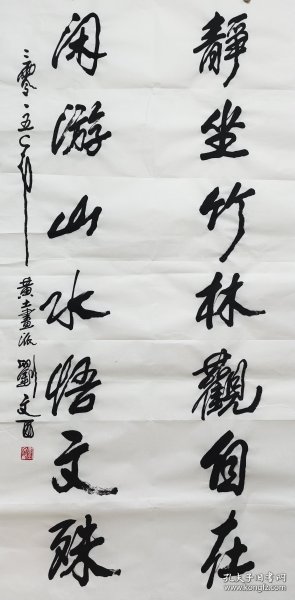 靜坐竹林觀自在
闲游山水悟文殊
二零一五年
黄土畫派劉文西
孔夫子旧书网
www.kongfz.com